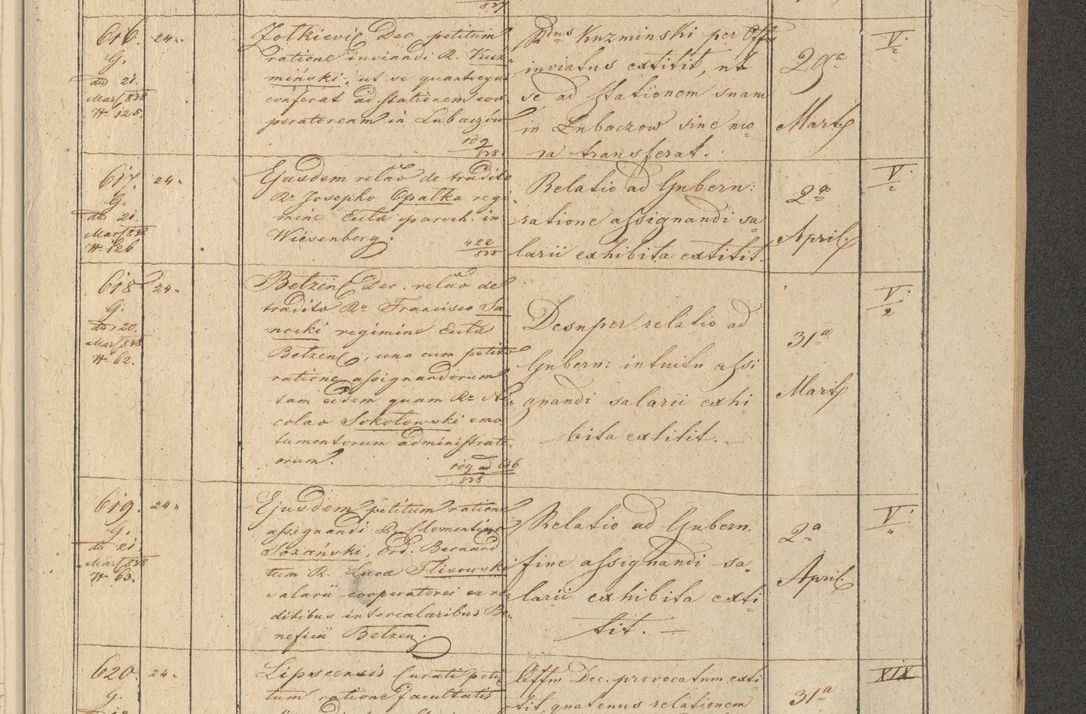 616. 24.
G.
dto 21.
Mart 838
N. 125.
Zolkievi Dec. petitum
ratione inviandi R. Kuz-
miński, ut se quantocyus
conferat ad stationem coo-
peratoream in Lubaczów
109
838.
Rdus Kuzminski per Offm
inviatus extitit, ut
se ad stationem suam
in Lubaczow sine mo-
ra transferat.
29a
Marty
V
2
617. 24.
G.
dto 21.
Mart 838
N. 126
Ejusdem relāo de tradito
Ro Josepho Opałka regi-
mine Eccla paroch. in
Wiesenberg.
422
838
Relatio ad Gubern:
ratione assignandi sa-
larii exhibita extitit.
2a
April
V
2
618 24.
G.
dto 20.
Mart 838
N. 62.
Belzen Dec. relāo de
tradito Ro Francisco Sa-
nocki regimine Eccla
Belzen, una cum petito
ratione assignandorum
tam eidem quam Ro Ni-
colao Sokołowski emo-
lumentorum administrat-
orum.
109 ad 616
838
Desuper relatio ad
Gubern: intuitu assi
gnandi salarii exhi
bita extitit.
31a
Marty
V
2
619. 24.
G.
dto 21.
Mart 838
N. 63.
Ejusdem petitum ratione
assignandi R. Clementino
Sozański, Ord. Bernard
tum R. Luca Flisowski
salarii cooperatorei ex re-
ditibus intercalaribus Be-
neficii Belzen.
Relatio ad Gubern.
fine assignandi sa-
larii exhibita exti
tit.
2a
April.
V
620. 24.
G.
Lipscensis Curati peti-
tum ratione facultatis
Offm Dec. provocatum exti
tit quatenus relationem
31a
XIX